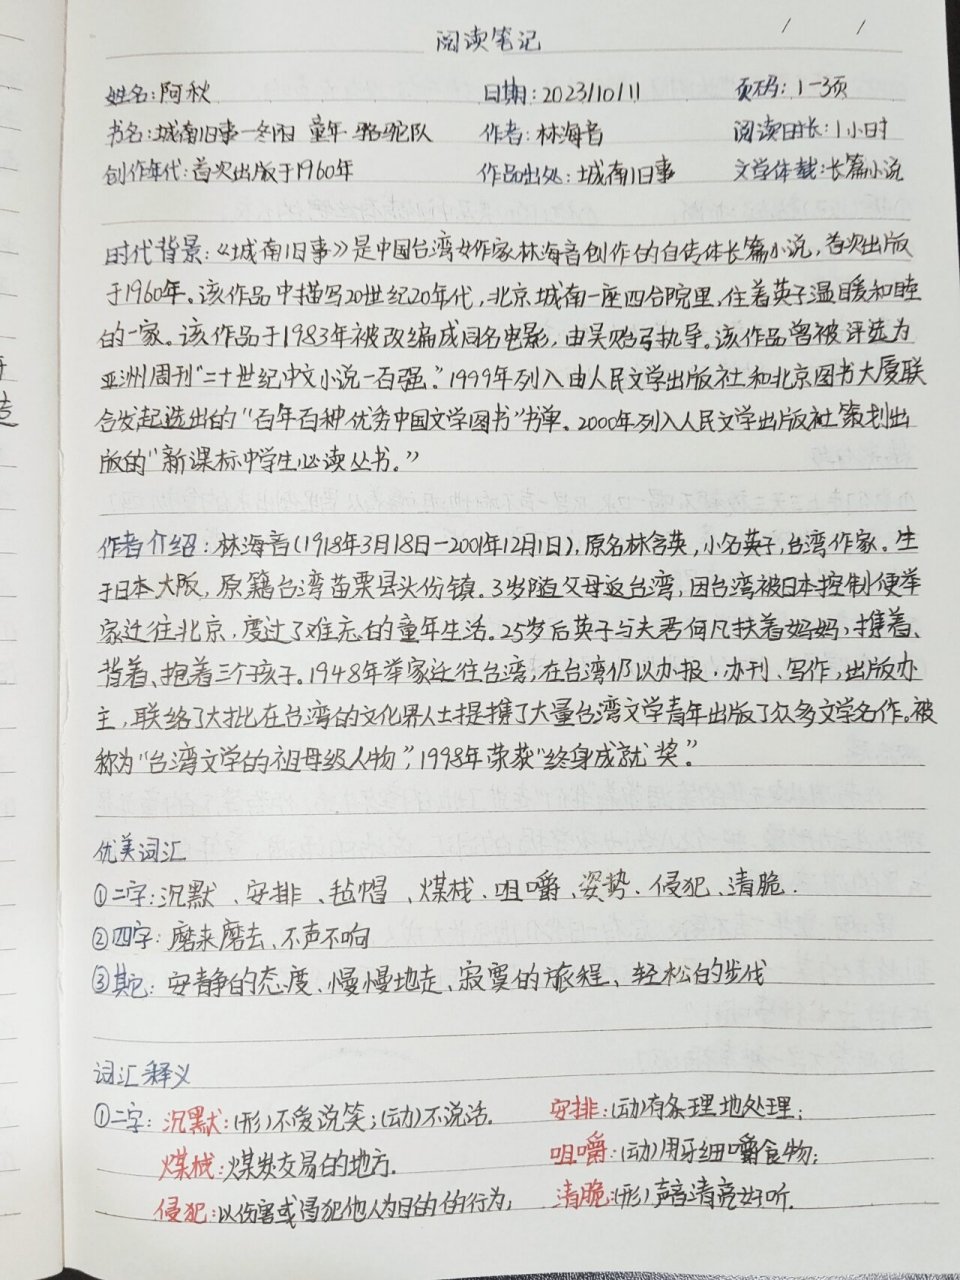 阅读笔记
姓名:阿秋 日期:2023/10/11 页码:1-3页
书名:城南旧事-冬阳 童年 骆驼队 作者:林海音 阅读日长:1小时
创作年代:首次出版于1960年 作品出处:城南旧事 文学体裁:长篇小说
时代背景:《城南旧事》是中国台湾女作家林海音创作的自传体长篇小说,首次出版
于1960年。该作品中描写20世纪20年代,北京城南一座四合院里,住着英子温暖和睦
的一家。该作品于1983年被改编成同名电影,由吴贻弓执导。该作品曾被评选为
亚洲周刊"二十世纪中文小说一百强。"1999年列入由人民文学出版社和北京图书大厦联
合发起选出的"百年百种优秀中国文学图书"书单。2000年列入人民文学出版社策划出
版的"新课标中学生必读丛书。"
作者介绍:林海音(1918年3月18日-2001年12月1日),原名林含英,小名英子,台湾作家。生
于日本大阪,原籍台湾苗栗县头份镇。3岁随父母返台湾,因台湾被日本控制便举
家迁往北京,度过了难忘的童年生活。25岁后英子与夫君何凡扶着妈妈,携着、
背着、抱着三个孩子。1948年举家迁往台湾,在台湾仍以办报·办刊、写作,出版办
主,联络了大批在台湾的文化界人士提携了大量台湾文学青年出版了众多文学名作。被
称为"台湾文学的祖母级人物",1998年荣获"终身成就奖。"
优美词汇
①二字:沉默、安排、毡帽、煤栈、咀嚼、姿势、侵犯、清脆.
②四字:磨来磨去、不声不响
③其它:安静的态度、慢慢地走、寂寞的旅程、轻松的步伐
词汇释义
①二字:沉默:(形)不爱说笑;(动)不说话. 安排:(动)有条理地处理;
煤栈:煤炭交易的地方. 咀嚼:(动)用牙细嚼食物;
侵犯:以伤害或侵犯他人为目的的行为; 清脆:(形)声音清亮好听.